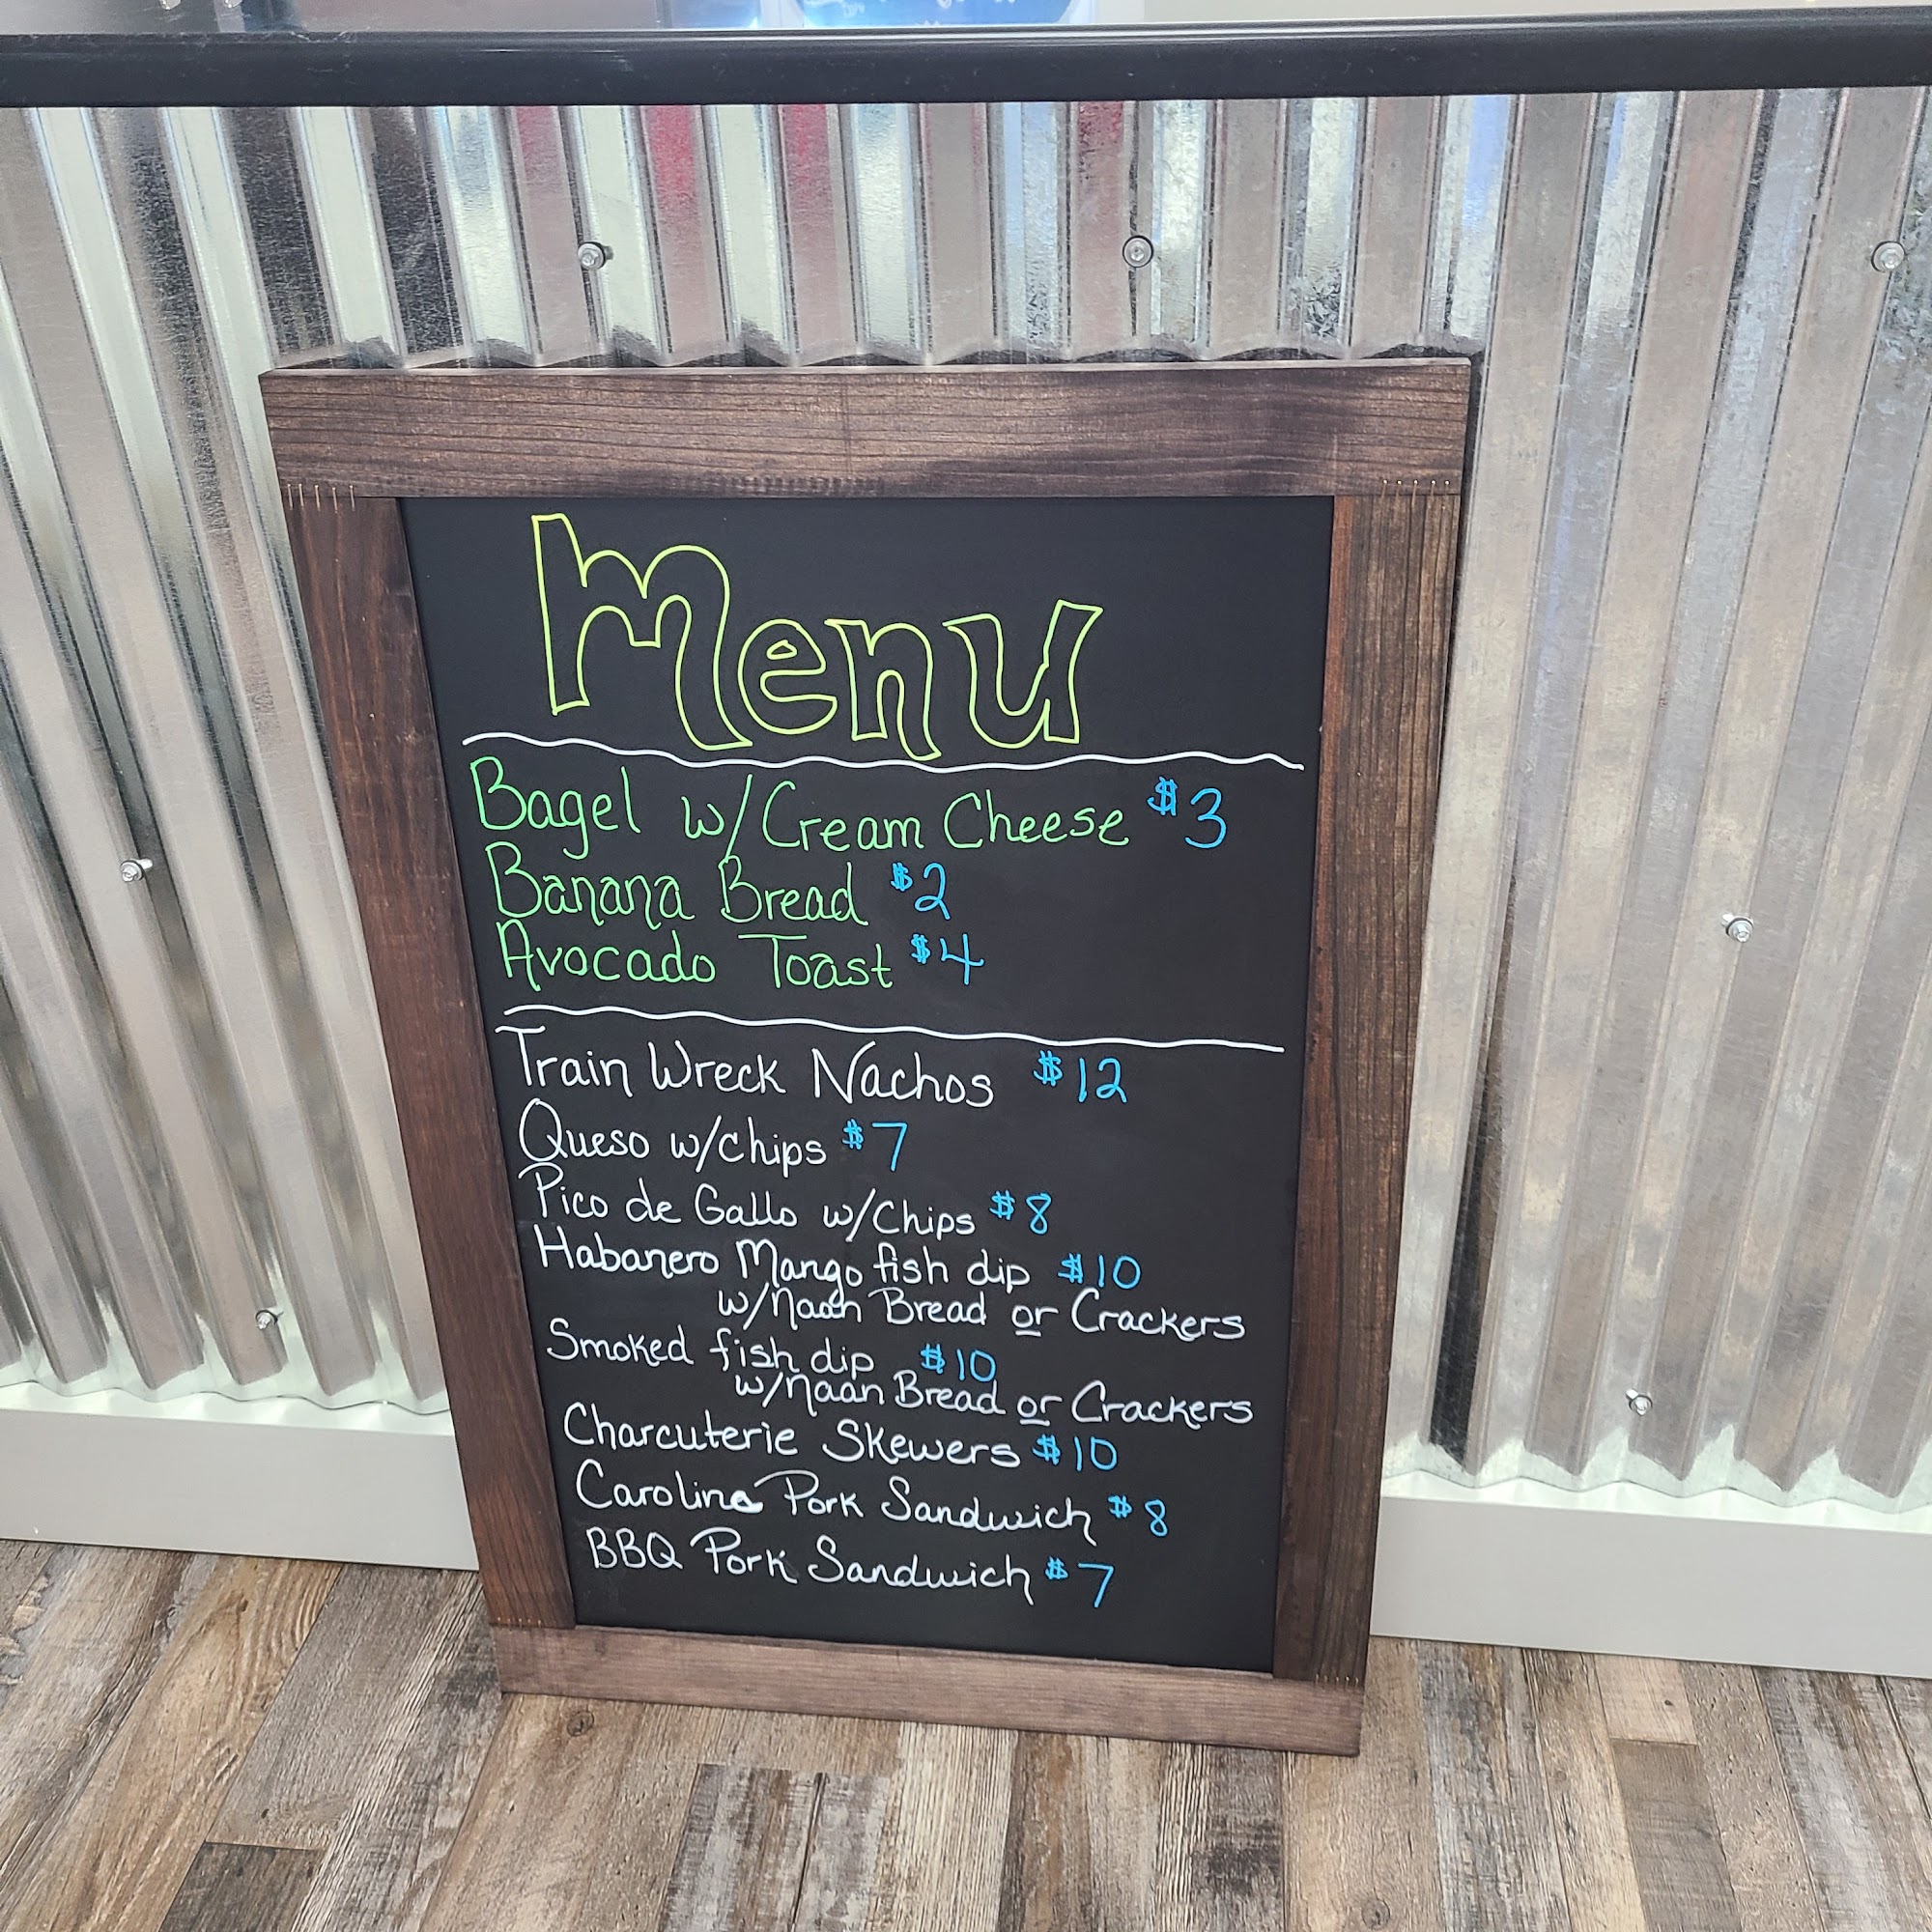 Menu
Bagel w/Cream Cheese $3
Banana Bread $2
Avocado Toast $4
Train Wreck Nachos $12
Queso w/chips $7
Pico de Gallo w/Chips $8
Habanero Mango fish dip $10
w/naan Bread or Crackers
Smoked fish dip $10
w/naan Bread or Crackers
Charcuterie Skewers $10
Carolina Pork Sandwich $8
BBQ Pork Sandwich $7